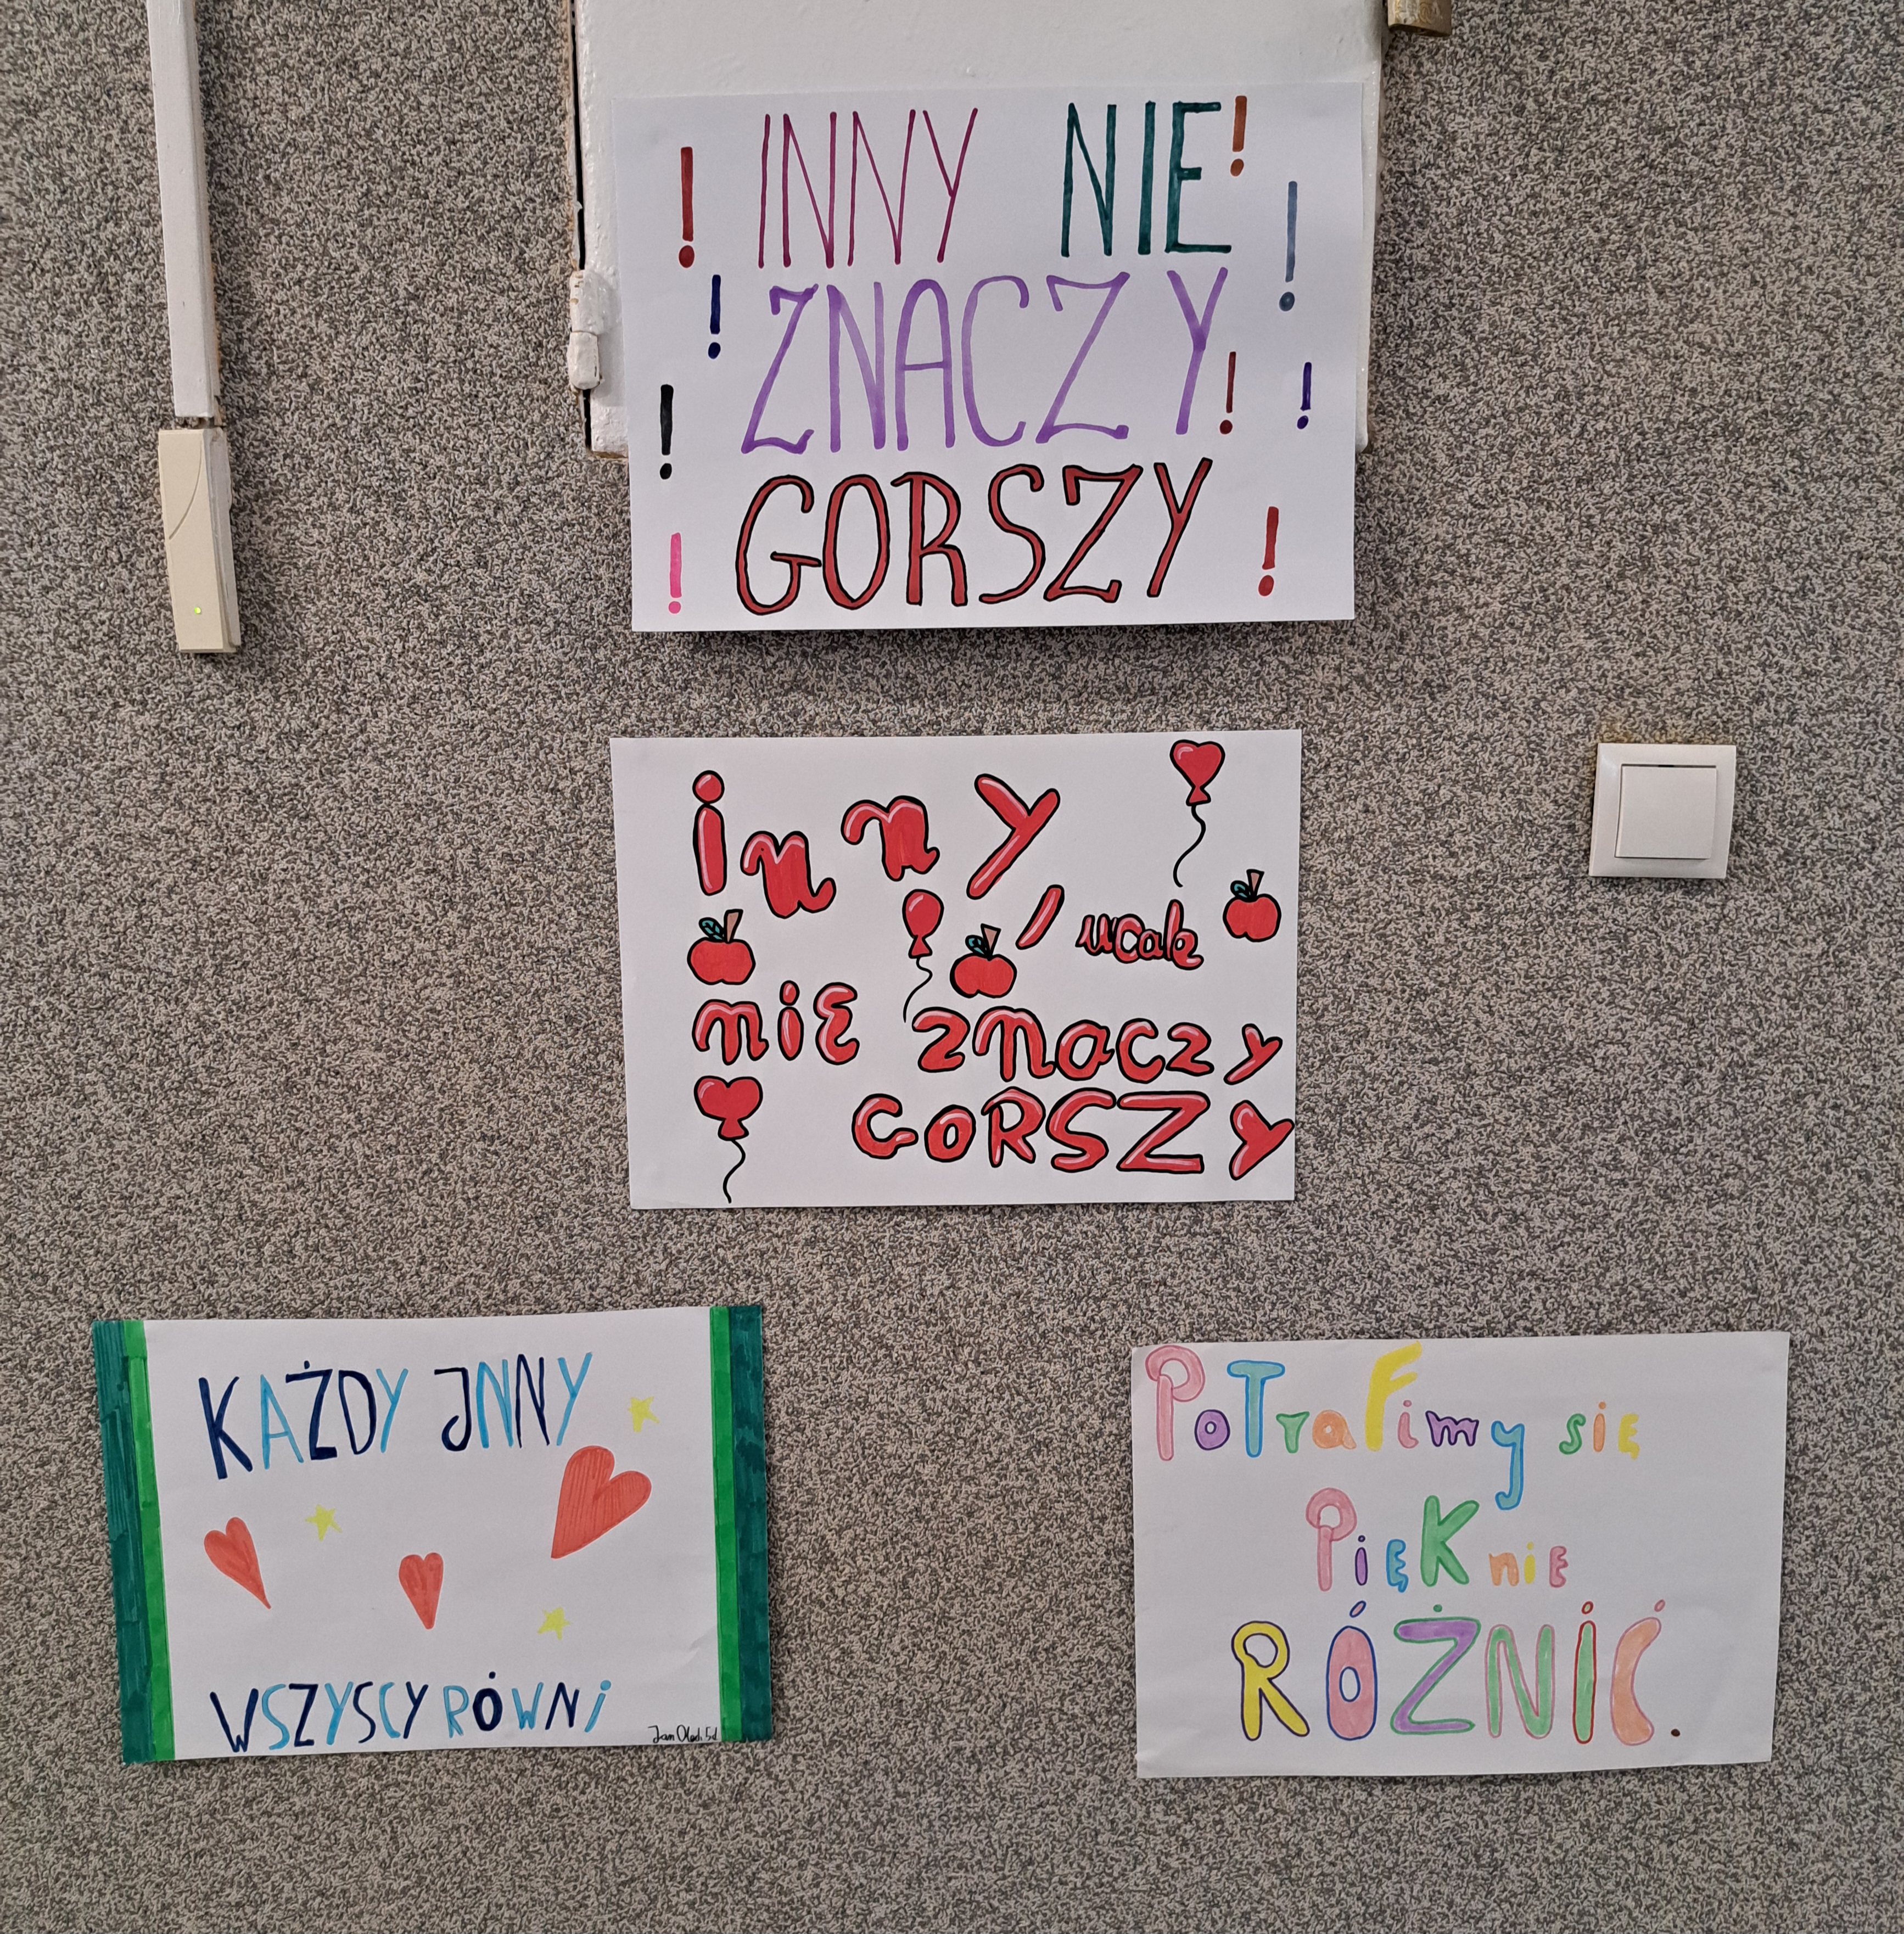 INNY NIE!
ZNACZY
GORSZY
inny,
wcale
nie znaczy
GORSZY
KAŻDY JNNY
WSZYSCY RÓWNi
Jan
5d
PoTraFimy się
PięKnie
RÓŻNiĆ.